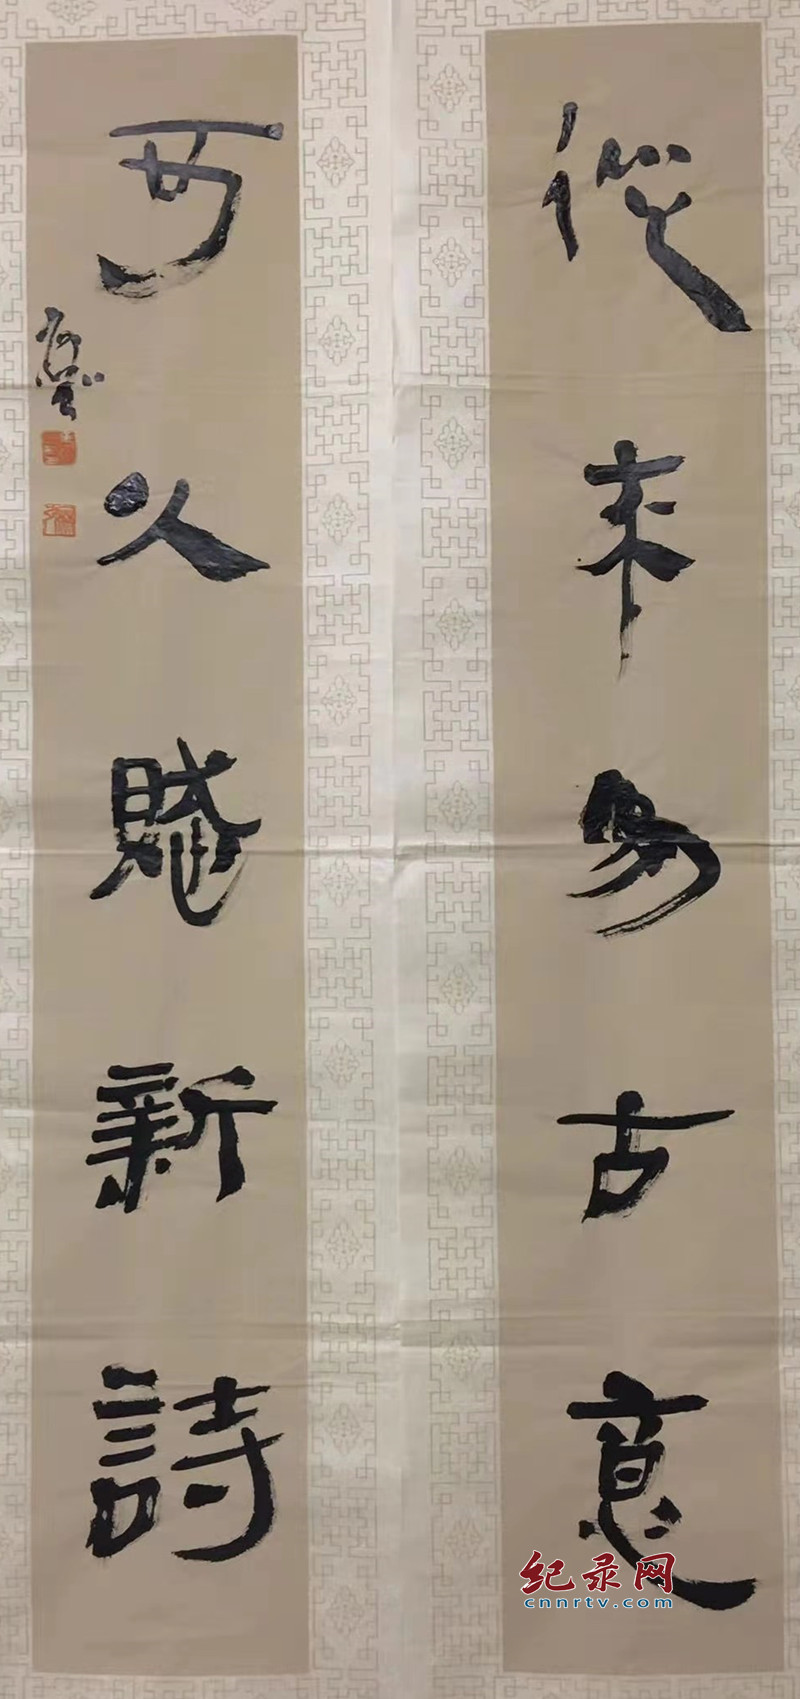 從来多古意
可以賦新詩
纪录网
cnnrtv.com